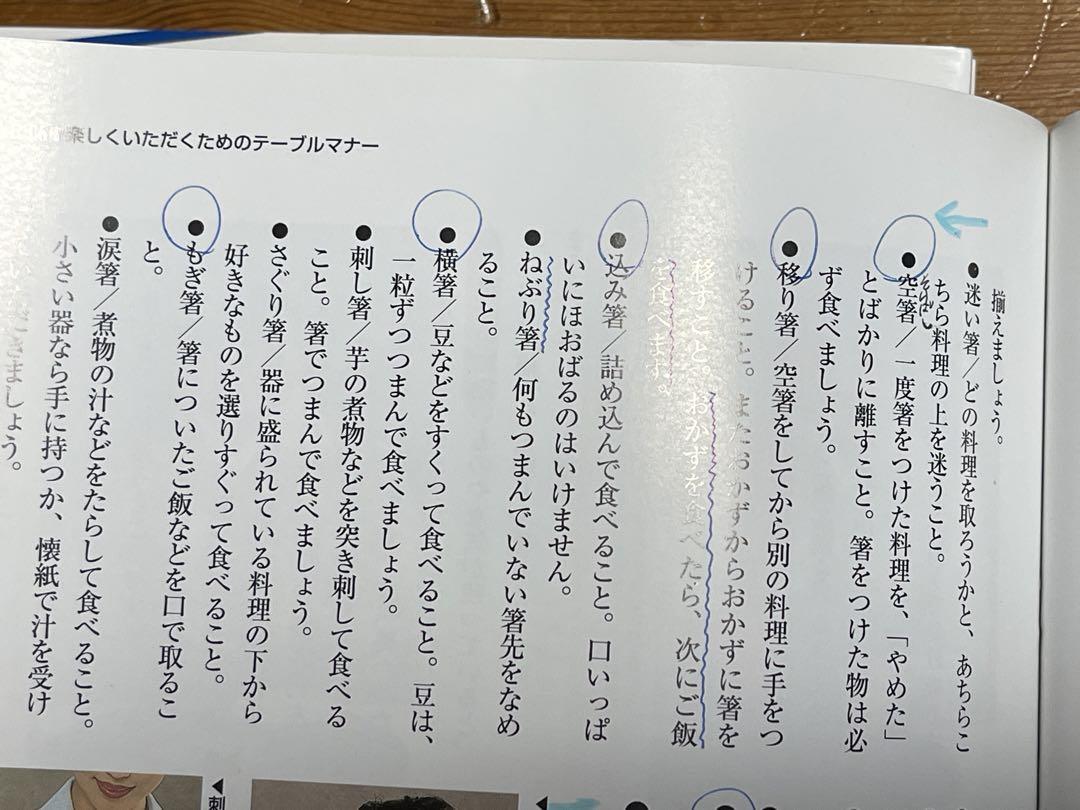 楽しくいただくためのテーブルマナー
揃えましょう。
●迷い箸／どの料理を取ろうかと、あちらこ
ちら料理の上を迷うこと。
●空箸／一度箸をつけた料理を、「やめた」
とばかりに離すこと。箸をつけた物は必
ず食べましょう。
●移り箸／空箸をしてから別の料理に手をつ
けること。またおかずからおかずに箸を
移すこと。おかずを食べたら、次にご飯
を食べます。
●込み箸／詰め込んで食べること。口いっぱ
いにほおばるのはいけません。
●ねぶり箸／何もつまんでいない箸先をなめ
ること。
●横箸／豆などをすくって食べること。豆は、
一粒ずつつまんで食べましょう。
●刺し箸／芋の煮物などを突き刺して食べる
こと。箸でつまんで食べましょう。
●さぐり箸／器に盛られている料理の下から
好きなものを選りすぐって食べること。
●もぎ箸／箸についたご飯などを口で取るこ
と。
●涙箸／煮物の汁などをたらして食べること。
小さい器なら手に持つか、懐紙で汁を受け
さましょう。
◀刺